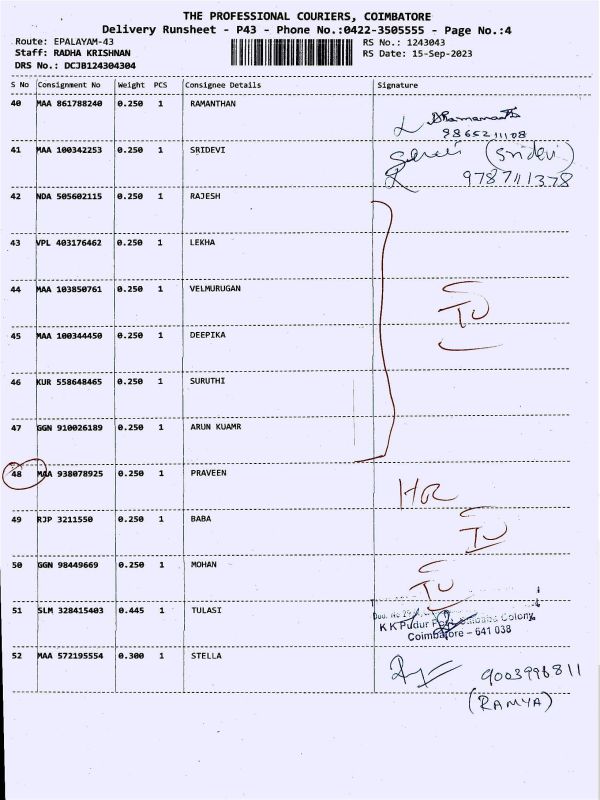 THE PROFESSIONAL COURIERS, COIMBATORE
Delivery Runsheet - P43 - Phone No.:0422-3505555 - Page No.:4
Route: EPALAYAM-43 RS No.: 1243043
Staff: RADHA KRISHNAN RS Date: 15-Sep-2023
DRS No.: DCJB124304304
S No Consignment No Weight PCS Consignee Details Signature
40 MAA 861788240 0.250 1 RAMANTHAN
9865211108
41 MAA 100342253 0.250 1 SRIDEVI (Sridevi)
9787111378
42 NDA 505602115 0.250 1 RAJESH
43 VPL 403176462 0.250 1 LEKHA
44 MAA 103850761 0.250 1 VELMURUGAN
TU
45 MAA 100344450 0.250 1 DEEPIKA
46 KUR 558648465 0.250 1 SURUTHI
47 GGN 910026189 0.250 1 ARUN KUAMR
48 MAA 938078925 0.250 1 PRAVEEN
49 RJP 3211550 0.250 1 BABA TU
50 GGN 98449669 0.250 1 MOHAN TU
51 SLM 328415403 0.445 1 TULASI
K K Pudur Colony,
Coimbatore - 641 038
52 MAA 572195554 0.300 1 STELLA 9003996811
(RAMYA)